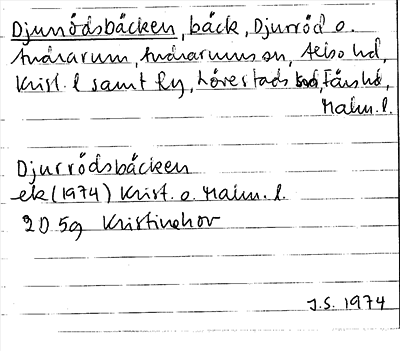 Djurrödsbäcken, bäck, Djurröd o.
Andrarum, Andrarums sn, Albo hd,
Krist. l samt Ry, Lövestads sn, Färs hd,
Malm. l.
Djurrödsbäcken
ek (1974) Krist. o. Malm. l.
2D 5g Kristinehov
J.S. 1974